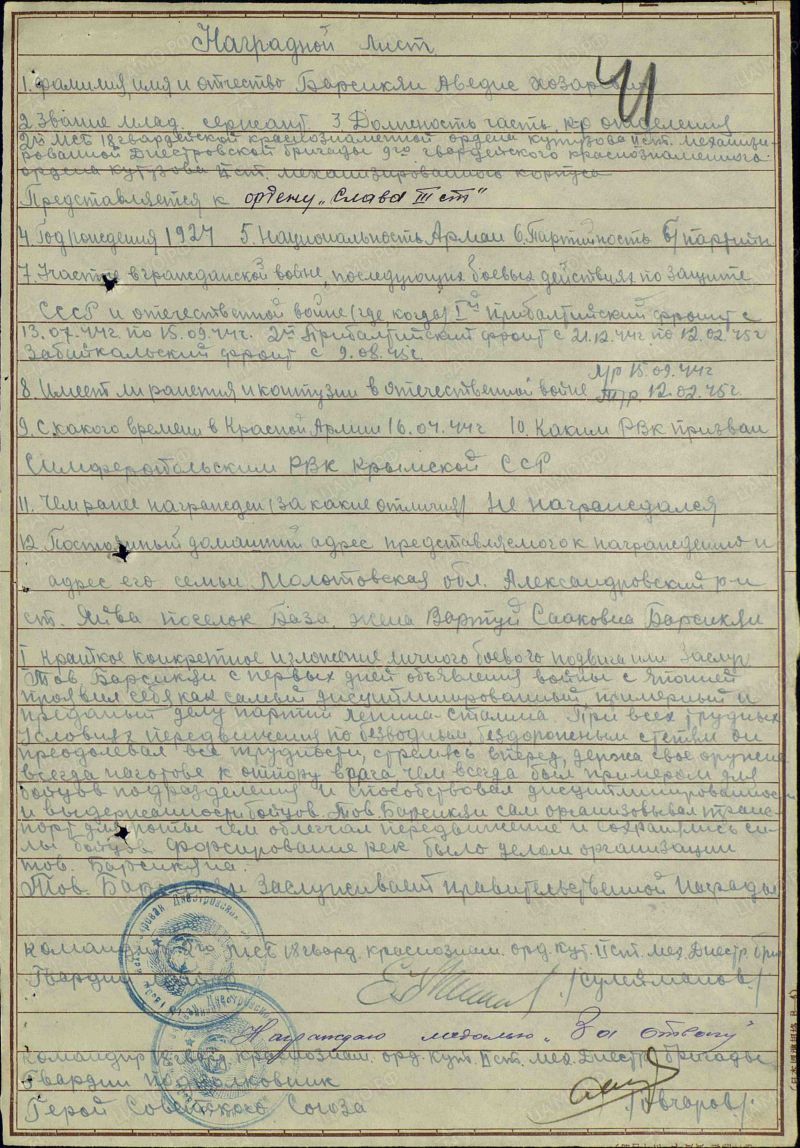 Наградной лист
41
1. фамилия, имя и отчество Барсикян Аведис Хозаревич
2. Звание млад. сержант 3. Должность часть к-р отделения
2го МСБ 18 гвардейской краснознаменной ордена кутузова II ст. механизи-
рованной Днестровской бригады 9го гвардейского краснознаменного
ордена кутузова II ст. механизированного корпуса
Представляется к ордену „Слава III ст"
4. Год рождения 1927 5. Национальность Арман 6. Партийность б/партийн
7. Участие в гражданской войне, последующих боевых действиях по защите
СССР и отечественной войне (где когда) Iй Прибалтийский фронт с
13.07.44г. по 15.09.44г. 2й Прибалтийский фронт с 21.12.44г по 12.02.45г
Забайкальский фронт с 9.08.45г.
8. Имеет ли ранения и контузии в отечественной войне л/р 15.09.44г
т/р. 12.02.45г.
9. С какого времени в Красной Армии 16.04.44г 10. Каким РВК призван
Симферопольским РВК Крымской ССР
11. Чем ранее награжден (за какие отличия) Не награждался
12. Постоянный домашний адрес представляемого к награждению и
адрес его семьи Молотовская обл. Александровский р-н
ст. Яйва поселок База. жена Вартуй Сааковна Барсикян
I Краткое конкретное изложение личного боевого подвига или заслуг
Тов. Барсикян с первых дней объявления войны с Японией
проявил себя как самый дисциплинированный примерный и
преданый делу партии Ленина-Сталина. При всех трудных
условиях передвижения по безводным, бездорожным степям он
преодолевал все трудности, стремясь вперед, держа свое оружие
всегда наготове к отпору врага чем всегда был примером для
бойцов подразделения и способствовал дисциплинированности
и выдержанности бойцов. Тов. Барсикян сам организовывал транс-
порт для роты чем облегчал передвижение и сохранялись си-
лы бойцов. Форсирование рек было делом организации
тов. Барсикяна.
Тов. Барсикян заслуживает правительственной награды
Командир 2го МСБ 18 гвард. краснознам. орд. Кут. II ст. мех. Днестр. бриг
Гвардии майор /Сулейманов/
Награждаю медалью „За отвагу"
Командир 18 гвард краснознам. орд. Кут. II ст. мех. Днестр бригады
Гвардии подполковник
Герой Советского Союза /Овчаров/